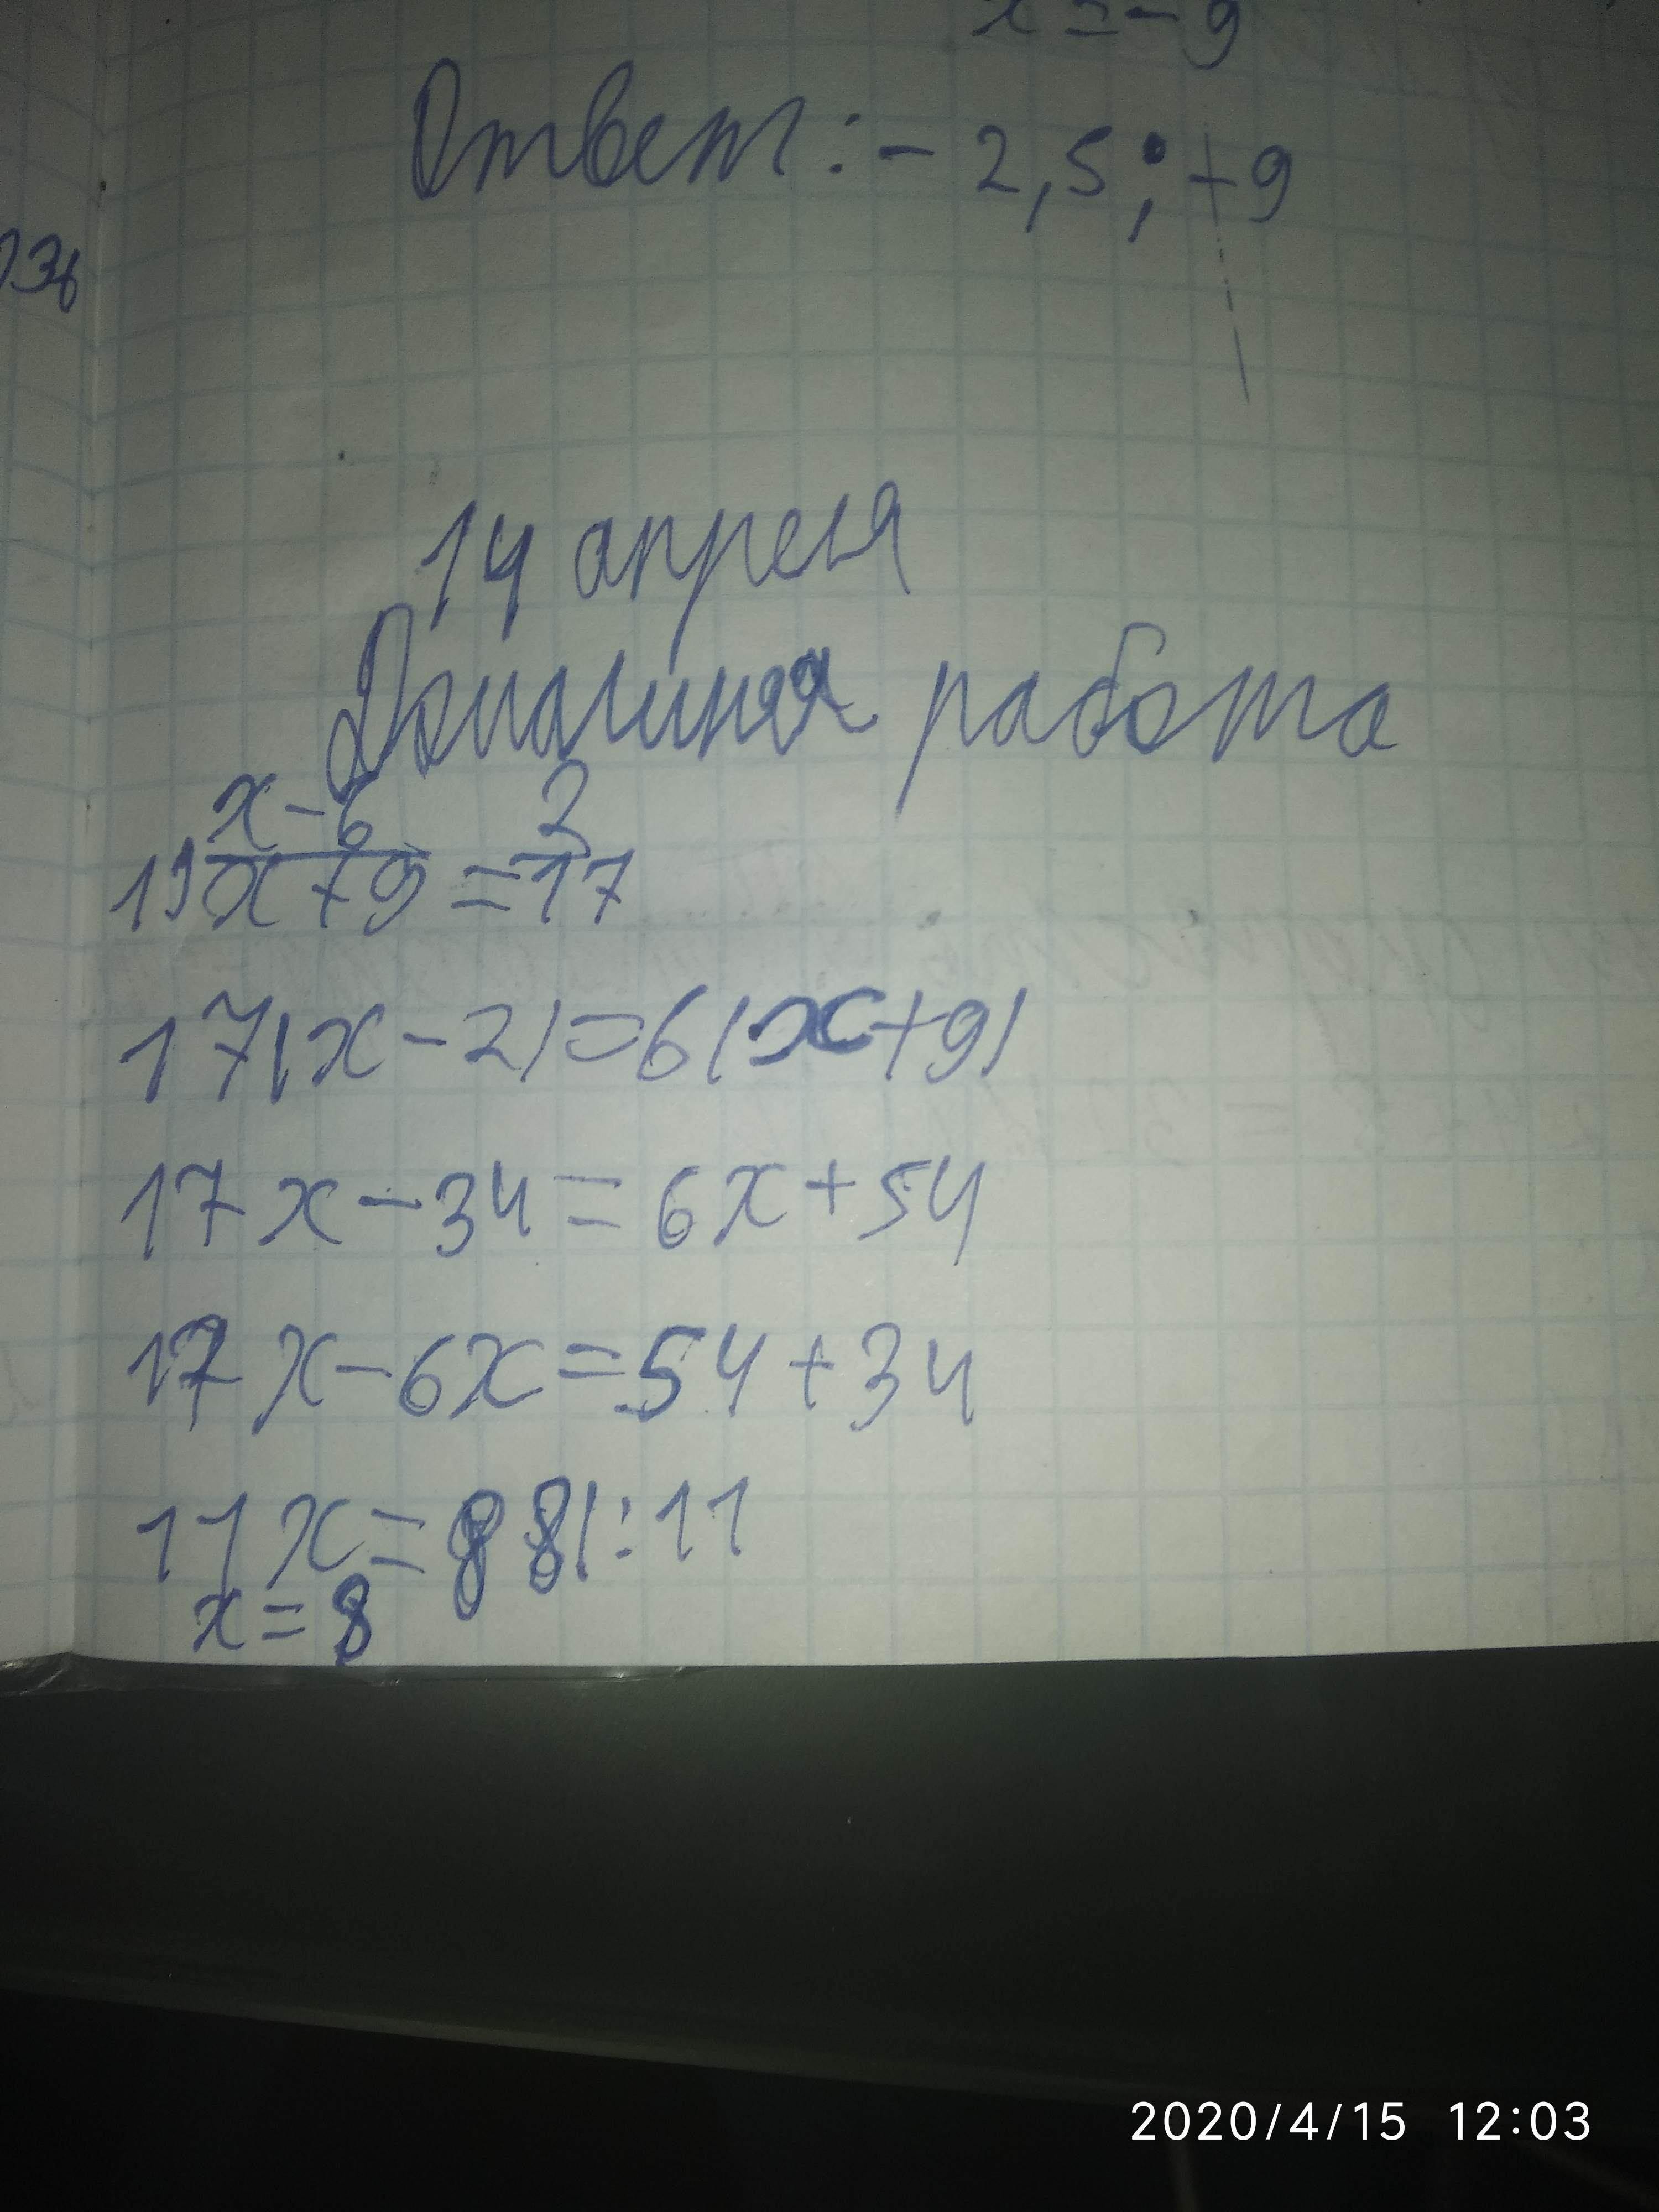 x = - 9
Ответ: - 2,5; + 9
14 апреля
Домашняя работа
x - 6 2
1) x + 9 = 17
17(x - 2) = 6(x + 9)
17x - 34 = 6x + 54
17x - 6x = 54 + 34
11x = 88 | : 11
x = 8
2020/4/15 12:03